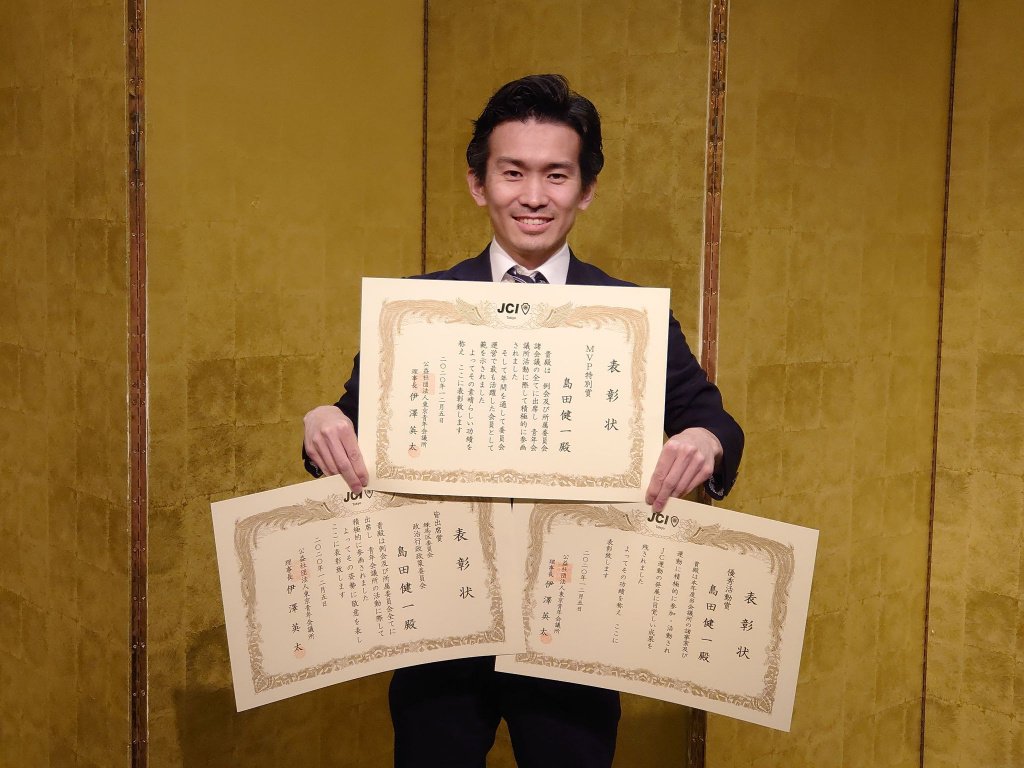 JCI
Tokyo
表彰状
MVP特別賞
島田健一殿
貴殿は 例会及び所属委員会
諸会議の全てに出席し 青年会
議所活動に際して積極的に参画
されました
そして年間を通して委員会
運営で最も活躍した会員として
範を示されました
よってその素晴らしい功績を
称え ここに表彰致します
二〇二〇年一二月五日
公益社団法人東京青年会議所
理事長 伊澤英太
JCI
Tokyo
表彰状
皆出席賞
練馬区委員会
政治行政政策委員会
島田健一殿
貴殿は例会及び所属委員会全てに
出席し 青年会議所の活動に際して
積極的に参画されました
よってその姿勢に敬意を表し
ここに表彰致します
二〇二〇年一二月五日
公益社団法人東京青年会議所
理事長 伊澤英太
JCI
Tokyo
表彰状
優秀活動賞
島田健一殿
貴殿は本年度当会議所の諸事業及び
運動に積極的に参加・活動され
JC運動の発展に目覚しい成果を
残されました
よってその功績を称え ここに
表彰致します
二〇二〇年一二月五日
公益社団法人東京青年会議所
理事長 伊澤英太